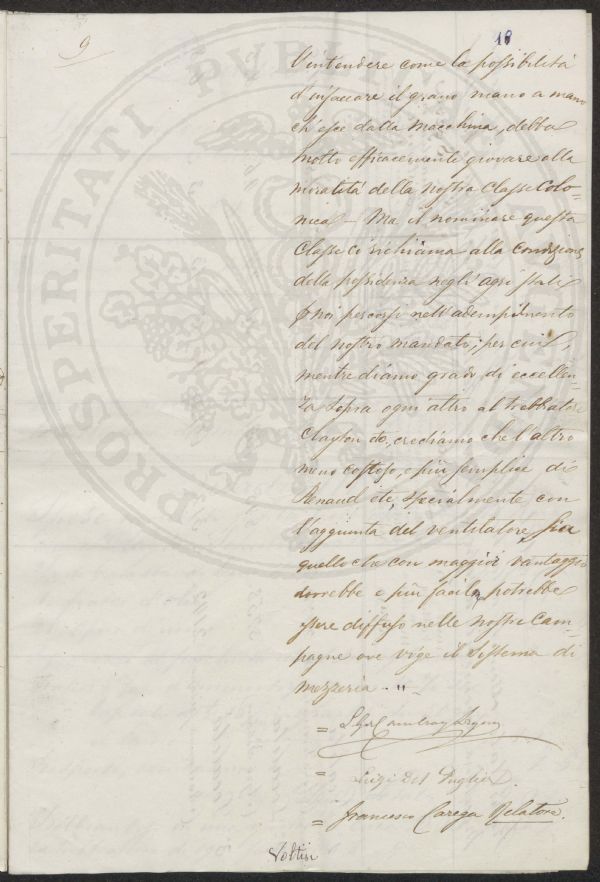 9
18
l'intendere come la possibilità
d'insaccare il grano mano a mano
ch'esce dalla macchina, debba
molto efficacemente giovare alla
moralità della nostra Classe Colo-
nica — Ma il nominare questa
Classe ci richiama alla condizione
della possidenza negli agri stati
da noi percorsi nell'adempimento
del nostro mandato; per cui,
mentre diamo grado di eccellen-
za sopra ogni altro al trebbiatore
Clayton &c, crediamo che l'altro
meno costoso, e più semplice di
Renaud etc, specialmente con
l'aggiunta del ventilatore, sia
quello che con maggior vantaggio
dovrebbe e più facile potrebbe
essere diffuso nelle nostre Cam-
pagne ove vige il Sistema di
mezzeria. "
= Cambray Digny
= Luigi Del Puglia
= Francesco Carega Relatore.
Voltisi
PROSPERITATI PVBLICAE